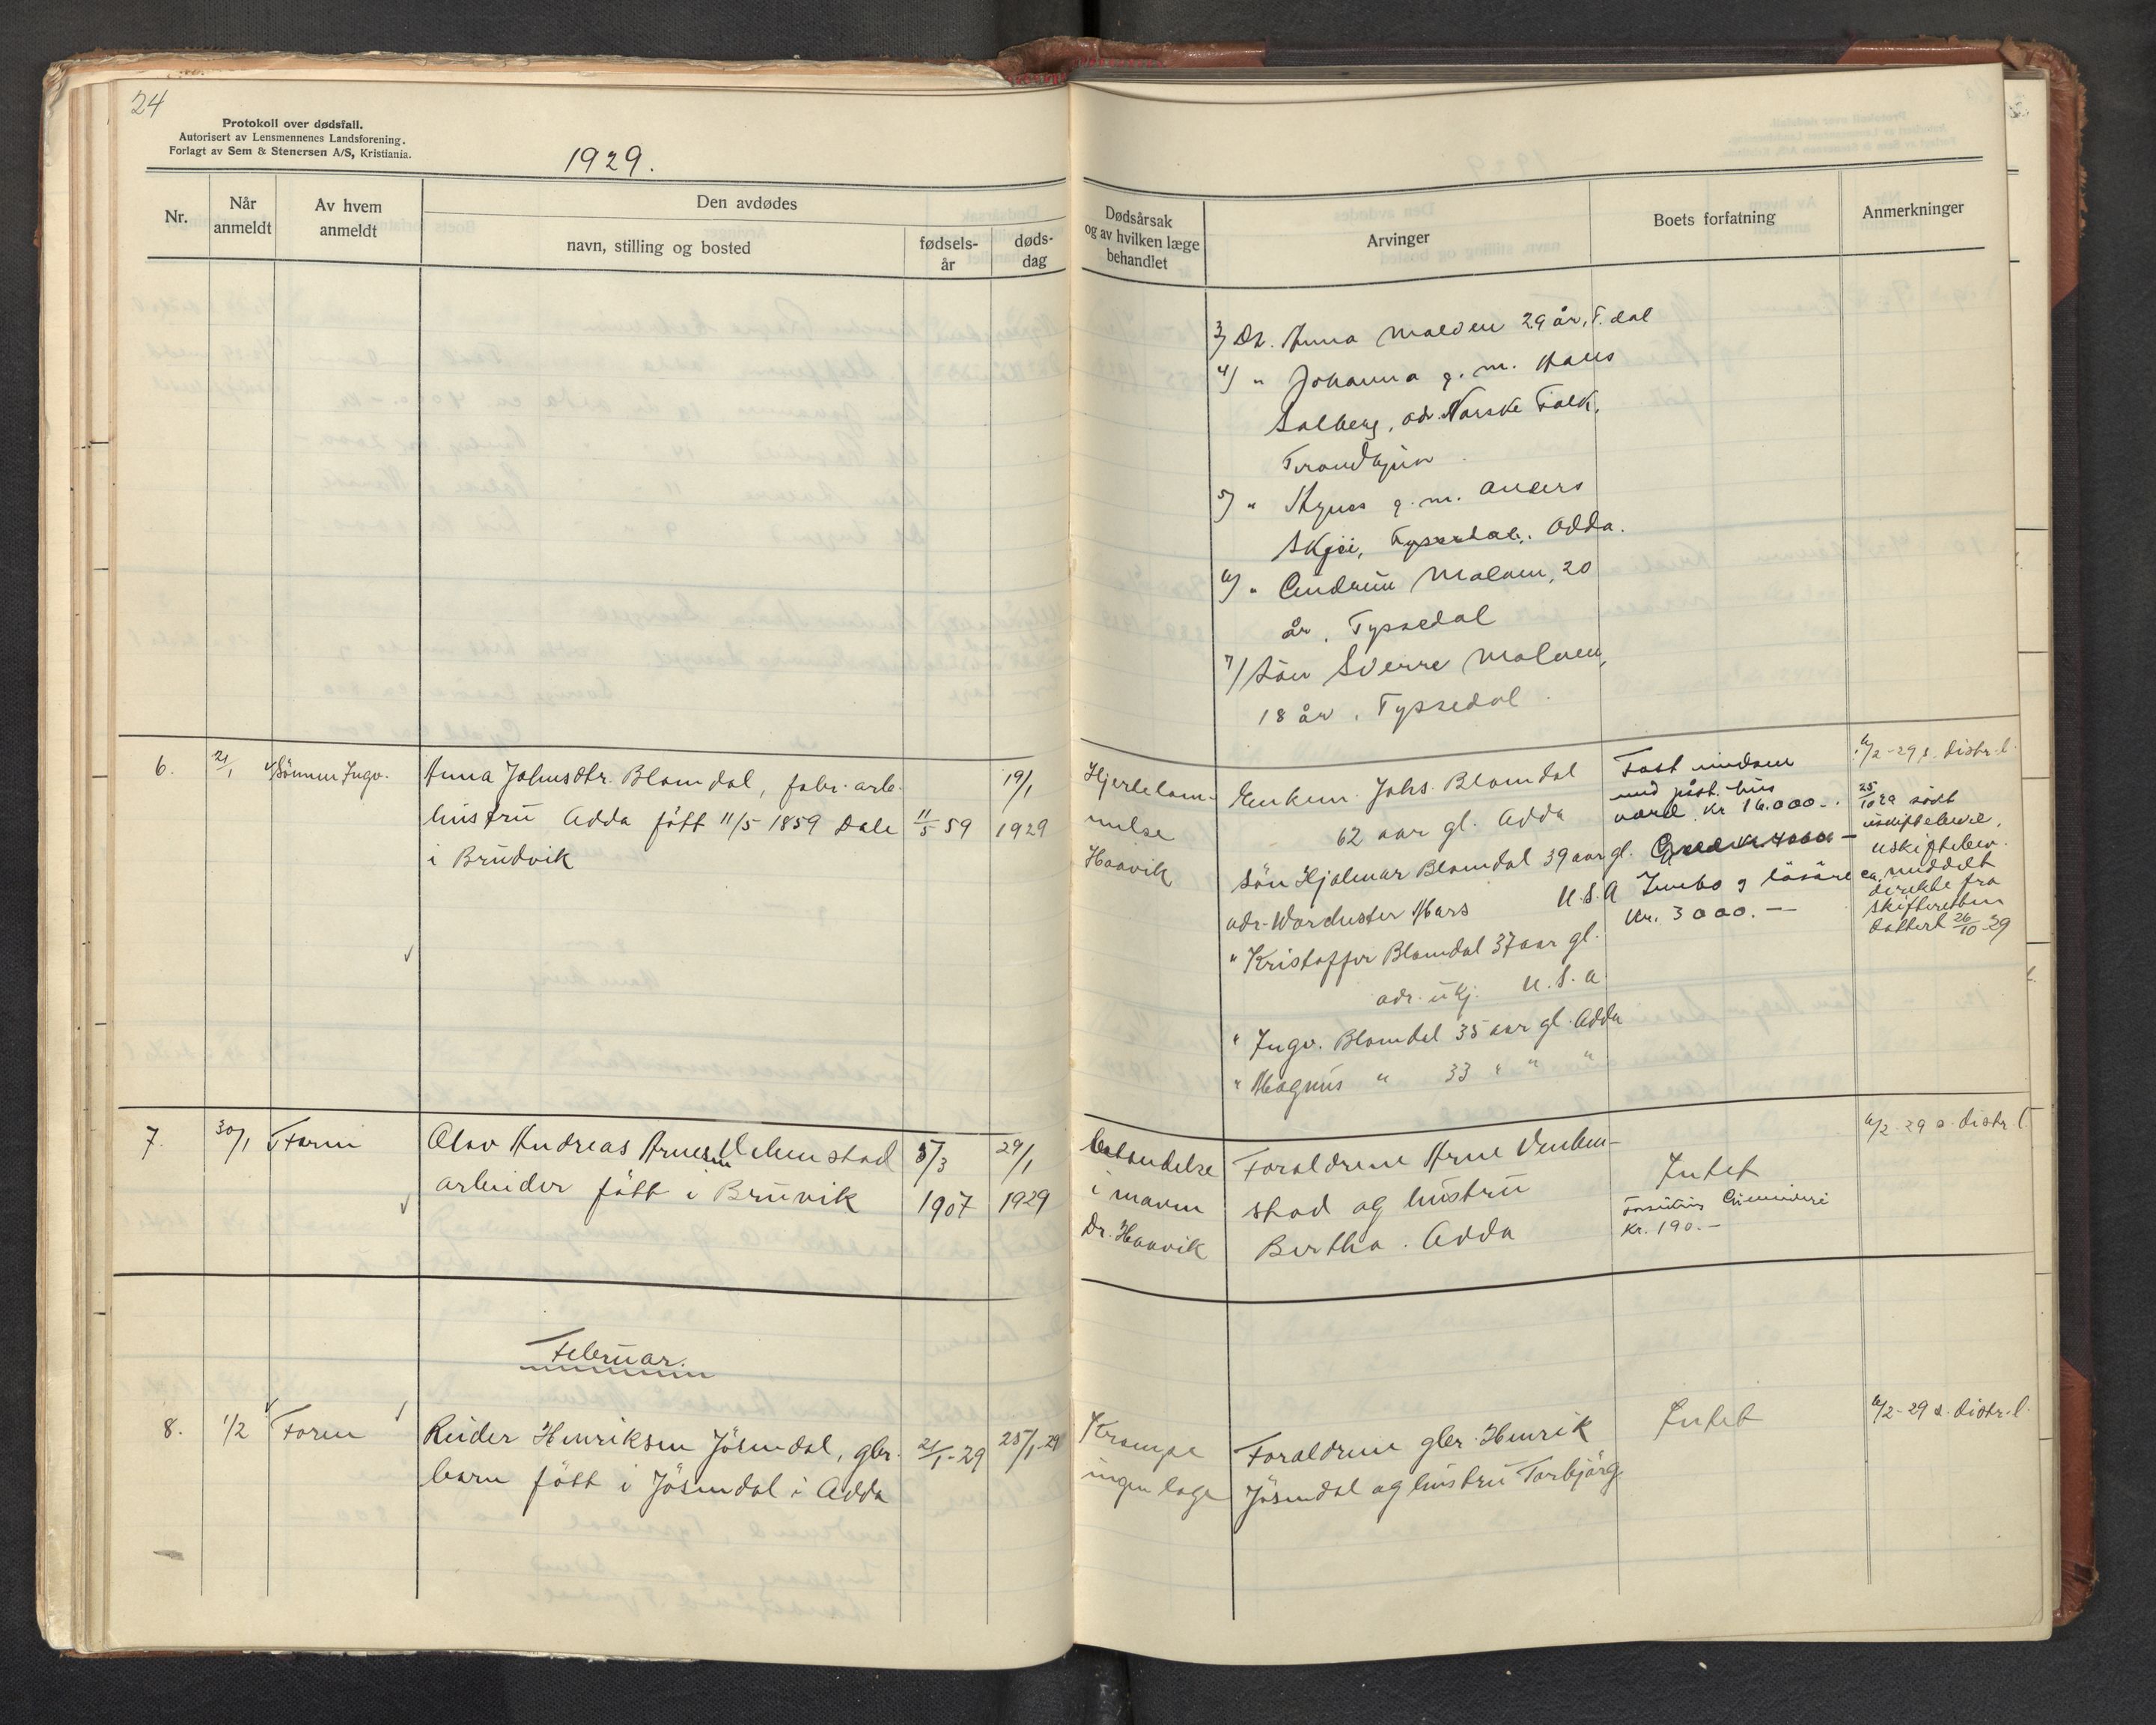 24
Protokoll over dødsfall.
Autorisert av Lensmennenes Landsforening.
Forlagt av Sem & Stenersen A/S, Kristiania.
1929.
Nr.
Når anmeldt
Av hvem anmeldt
Den avdødes
navn, stilling og bosted
fødsels-
år
døds-
dag
Dødsårsak
og av hvilken læge
behandlet
Arvinger
Boets forfatning
Anmerkninger
3) Dt. Anna Malven 29 år, T.dal
4) " Johanna g. m. Hans
Solberg, adr. Norske Folk,
Trondhjem
5) " g. m. Anders
Skjei, Tyssedal, Odda.
6) " Malven, 20
år, Tyssedal
7) Sön Sverre Malven,
18 år, Tyssedal.
6. 21/1 Sönnen Ingv. Anna Johnsdtr. Blomdal, fabr. arb.
hustru Odda födt 11/5 1859 Dale
i Brudvik
11/5 59
19/1
1929
Hjertelam-
melse
Haavik
Enkem. Johs. Blomdal
62 aar gl. Odda
Sön Hjalmar Blomdal 39 aar gl.
adr. U.S.A
" Kristoffer Blomdal 37 aar gl.
adr. ukj. U.S.A
" Ingv. Blomdal 35 aar gl. Odda
" Magnus " 33 " " "
Fast eiendom
med hus
verd kr 16.000.-
Gjeld kr. 4000 -
Innbo og lösöre ca
kr. 3000.-
6/2-29 s. distr.l.
25/10 29 södt
uskiftebevil.
uskiftebev.
meddelt
direkte fra
skifteretten
datert 26/10 -29
7. 30/1 Faren Olav Andreas Arnesen Vebenstad
arbeider födt i Bruvik
5/3
1907
29/1
1929
Betendelse
i maven
Dr. Haavik
Foreldrene Arne Veben-
stad og hustru
Bertha. Odda
Intet
kr. 190.-
6/2-29 s. distr.l.
Februar.
8. 1/2 Faren Reider Henriksen Jösendal, gbr.
barn födt i Jösendal i Odda
21/1-29
25/1-29
Krampe
ingen læge
Foreldrene gbr. Henrik
Jösendal og hustru Torbjörg.
Intet
6/2-29 s. distr.l.